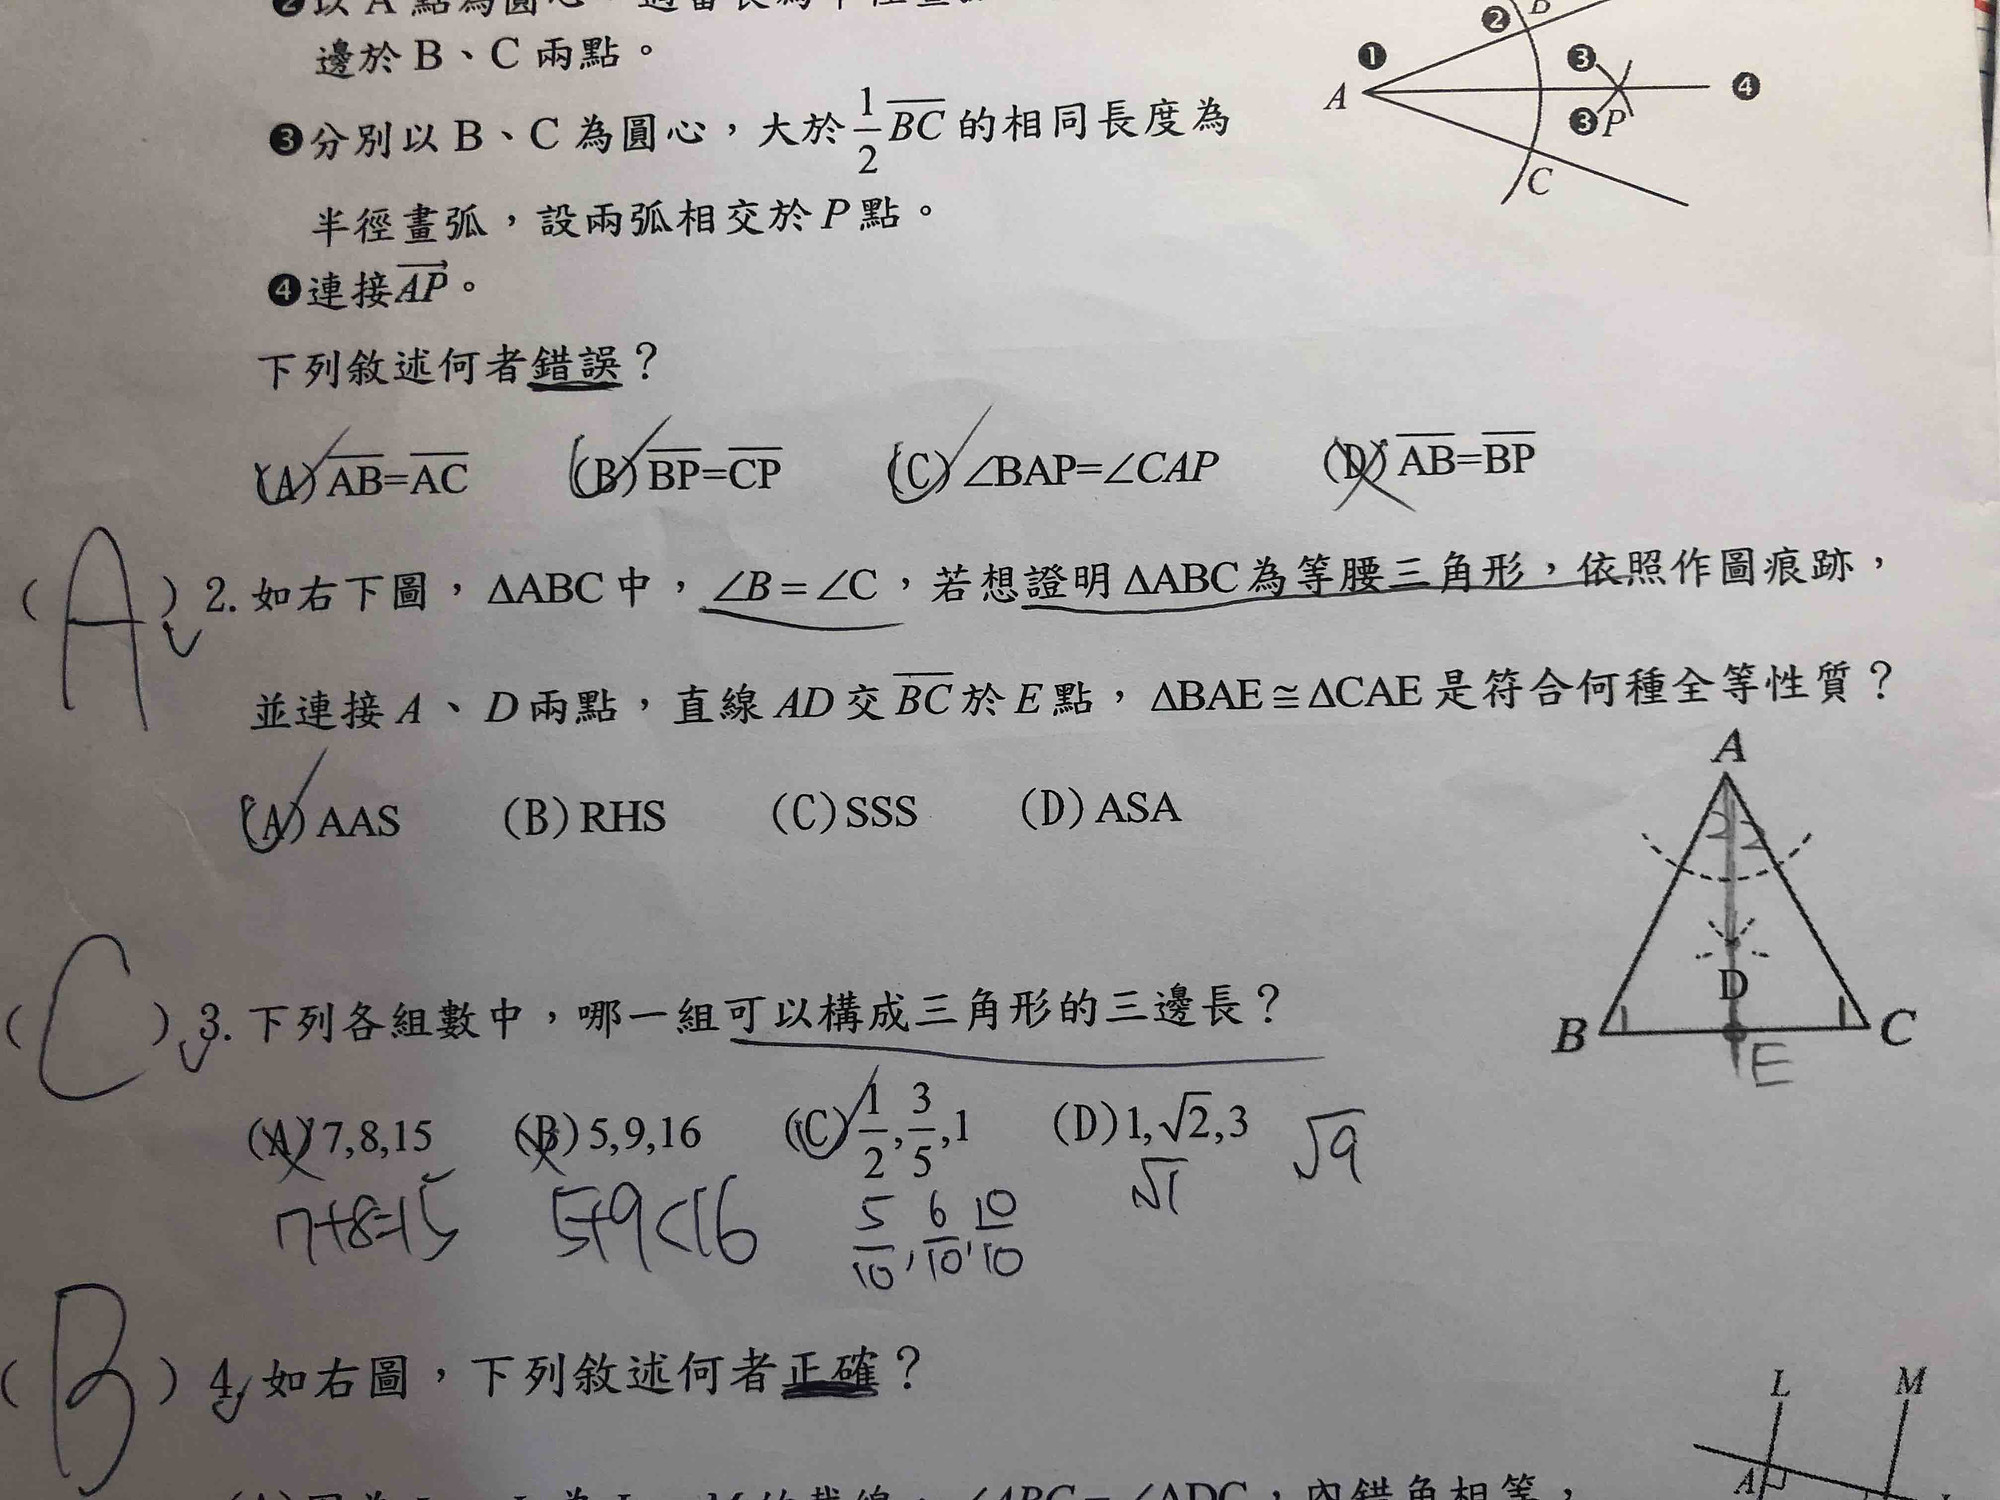 ❷以 A 點為圓心
邊於 B、C 兩點。
❸分別以 B、C 為圓心，大於 1/2 BC 的相同長度為
半徑畫弧，設兩弧相交於 P 點。
❹連接AP。
下列敘述何者錯誤？
(A) AB=AC (B) BP=CP (C) ∠BAP=∠CAP (D) AB=BP
❶ ❷ ❸ ❸ ❹ A B C P
( A ) 2. 如右下圖，ΔABC 中，∠B = ∠C，若想證明 ΔABC 為等腰三角形，依照作圖痕跡，
並連接 A、D 兩點，直線 AD 交 BC 於 E 點，ΔBAE ≅ ΔCAE 是符合何種全等性質？
(A) AAS (B) RHS (C) SSS (D) ASA
A
D
B C
E
( C ) 3. 下列各組數中，哪一組可以構成三角形的三邊長？
(A) 7,8,15 (B) 5,9,16 (C) 1/2, 3/5, 1 (D) 1, √2, 3 √9
7+8=15 5+9<16 5/10, 6/10, 10/10 √1
( B ) 4. 如右圖，下列敘述何者正確？
L M
A